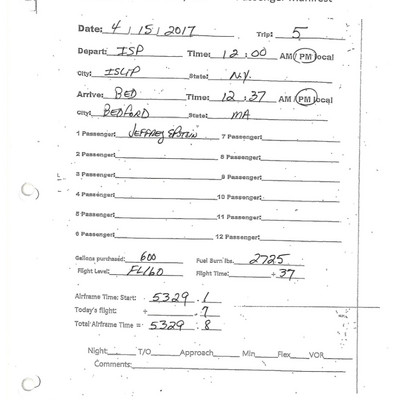 Passenger Manifest
Date: 4 / 15 / 2017 Trip: 5
Depart: ISP Time: 12:00 AM / PM local
City: ISLIP State: N.Y.
Arrive: BED Time: 12:37 AM / PM local
City: BEDFORD State: MA
1 Passenger: JEFFREY EPSTEIN 7 Passenger:
2 Passenger: 8 Passenger:
3 Passenger: 9 Passenger:
4 Passenger: 10 Passenger:
5 Passenger: 11 Passenger:
6 Passenger: 12 Passenger:
Gallons purchased: 600 Fuel Burn lbs. 2725
Flight Level: FL160 Flight Time: + 37
Airframe Time: Start: 5329 . 1
Today's flight: + . 7
Total Airframe Time = 5329 . 8
Night: T/O Approach Min Flex VOR
Comments: